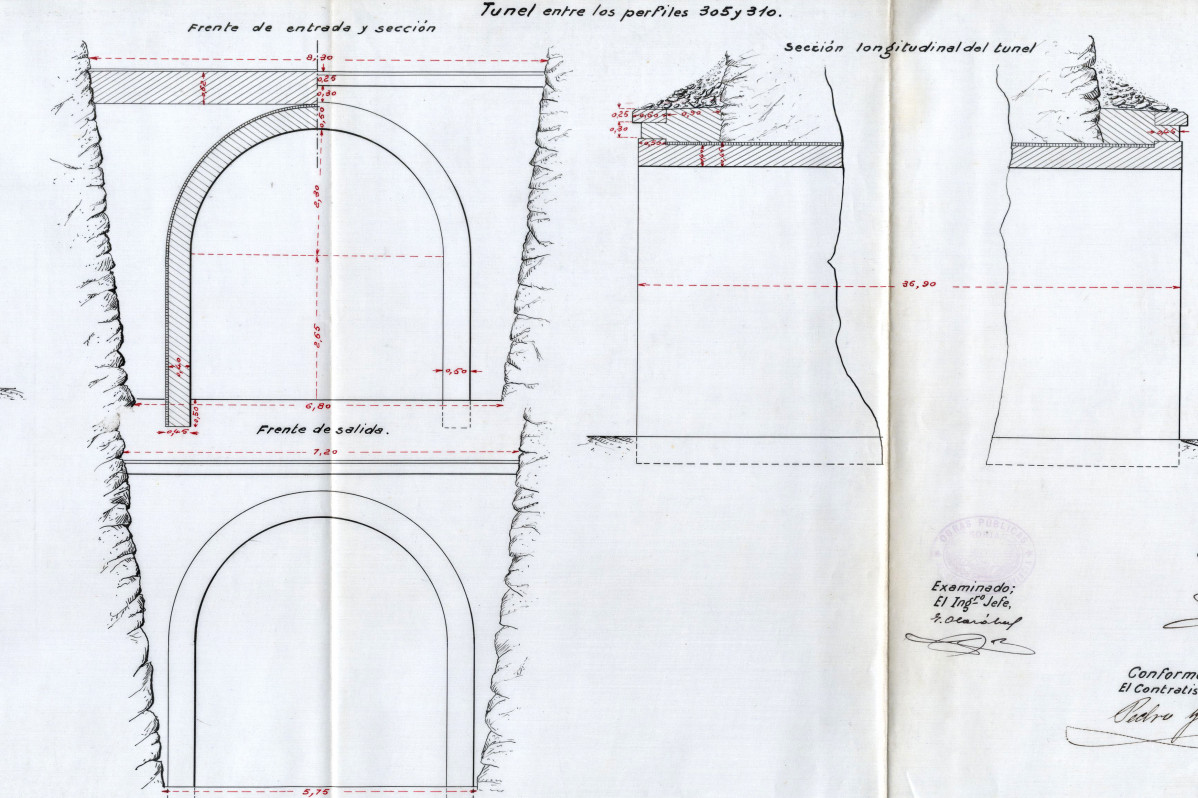 Tunel entre los perfiles 305 y 310.
Frente de entrada y sección
8,30
0,25
0,30
0,50
2,30
2,65
0,40
0,50
0,50
0,45
6,80
Frente de salida.
7,20
5,75
Sección longitudinal del tunel
0,25
0,50
0,90
0,30
0,45
36,90
OBRAS PUBLICAS
Examinado;
El Ingro Jefe,
Conform
El Contratis
Pedro